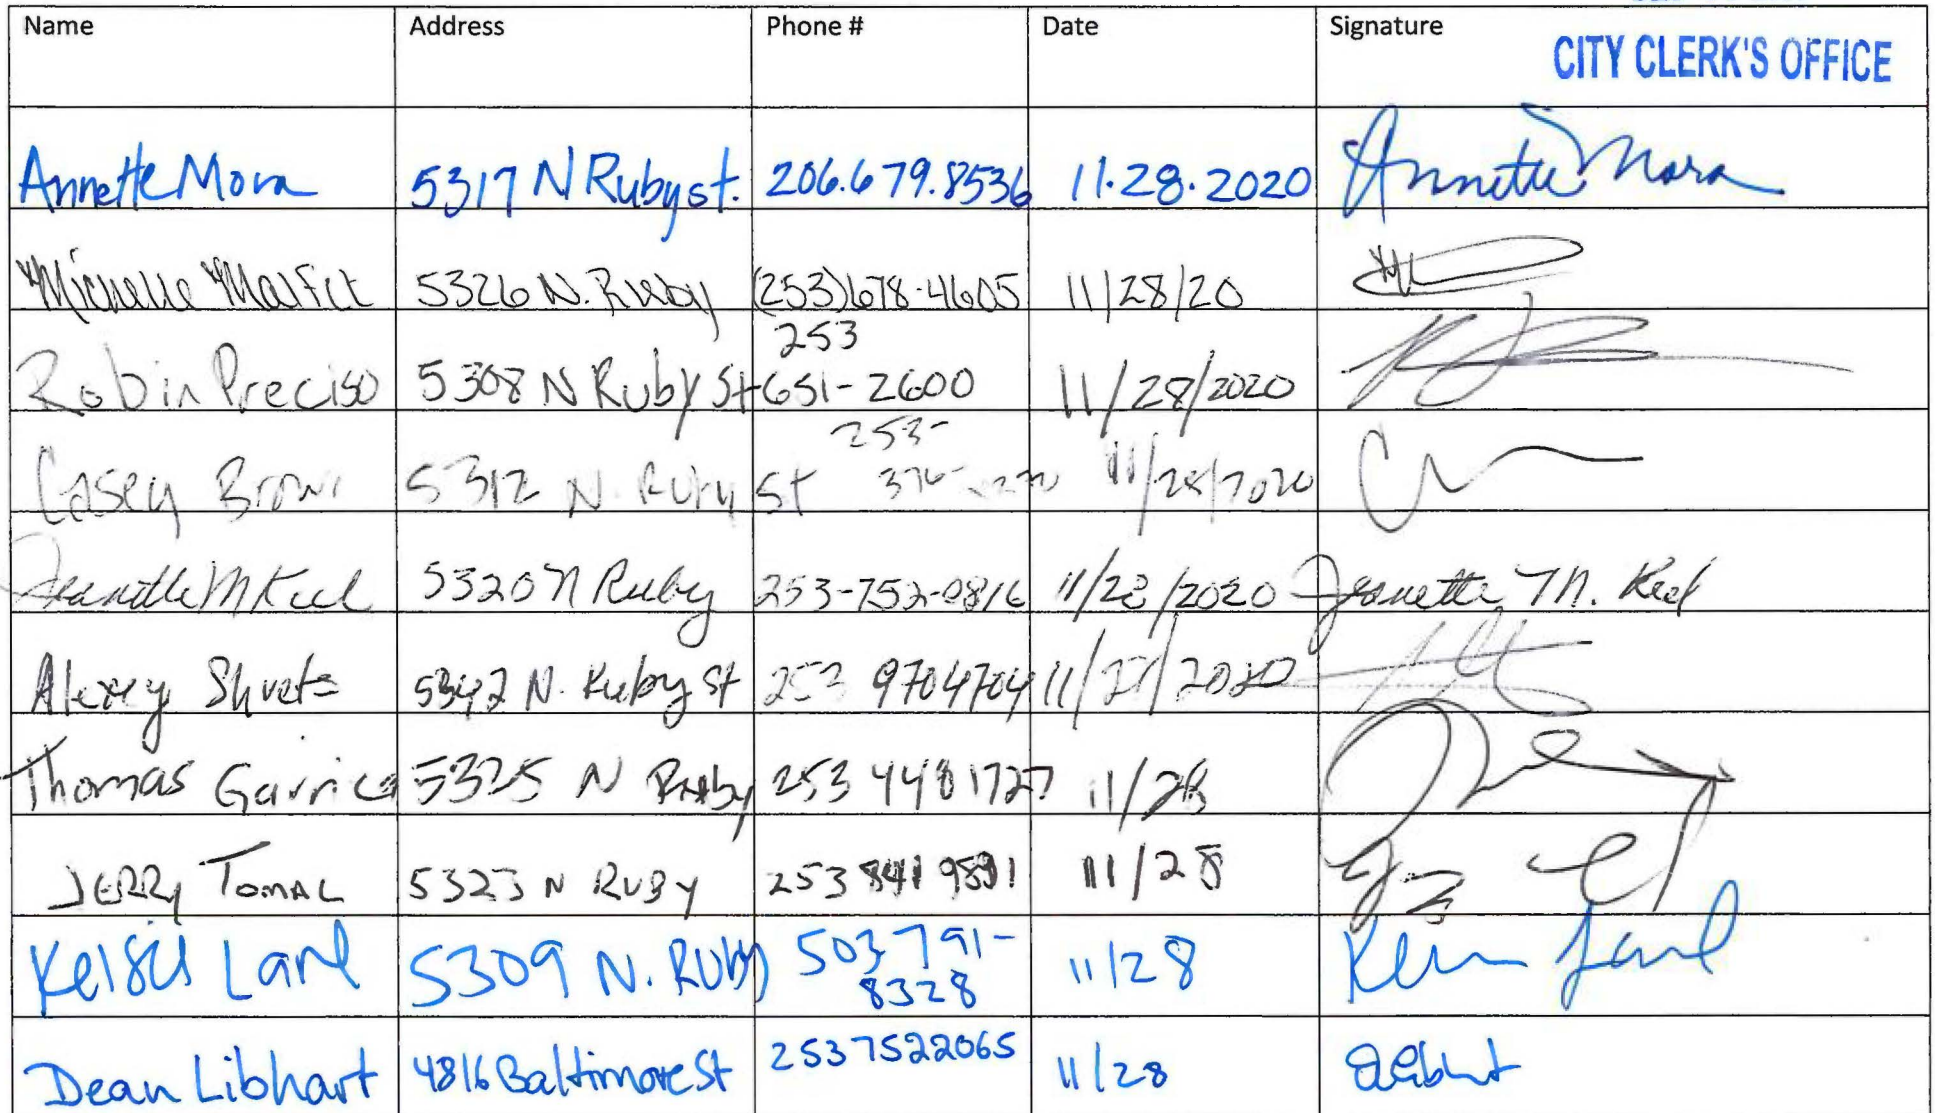 Name Address Phone # Date Signature
CITY CLERK'S OFFICE
Annette Mora 5317 N Ruby st. 206.679.8536 11.28.2020 Annette Mora
Michelle 5326 N. Ruby (253)678-4605 11/28/20
253
Robin Preciso 5308 N Ruby St 651-2600 11/28/2020
253-
Casey Brown 5312 N Ruby St 11/28/2020
Jeanette M Keel 5320 N Ruby 253-752-0816 11/28/2020 Jeanette M. Keel
Alexey Shvets 5342 N. Ruby St 253 9704704 11/ /2020
Thomas 5325 N Ruby 253 448 1727 11/28
JERRY TOMAL 5323 N RUBY 253 11/28
Kelsie Lane 5309 N. RUBY 503 791-
8328 11/28
Dean Libhart 4816 Baltimore St 2537522065 11/28